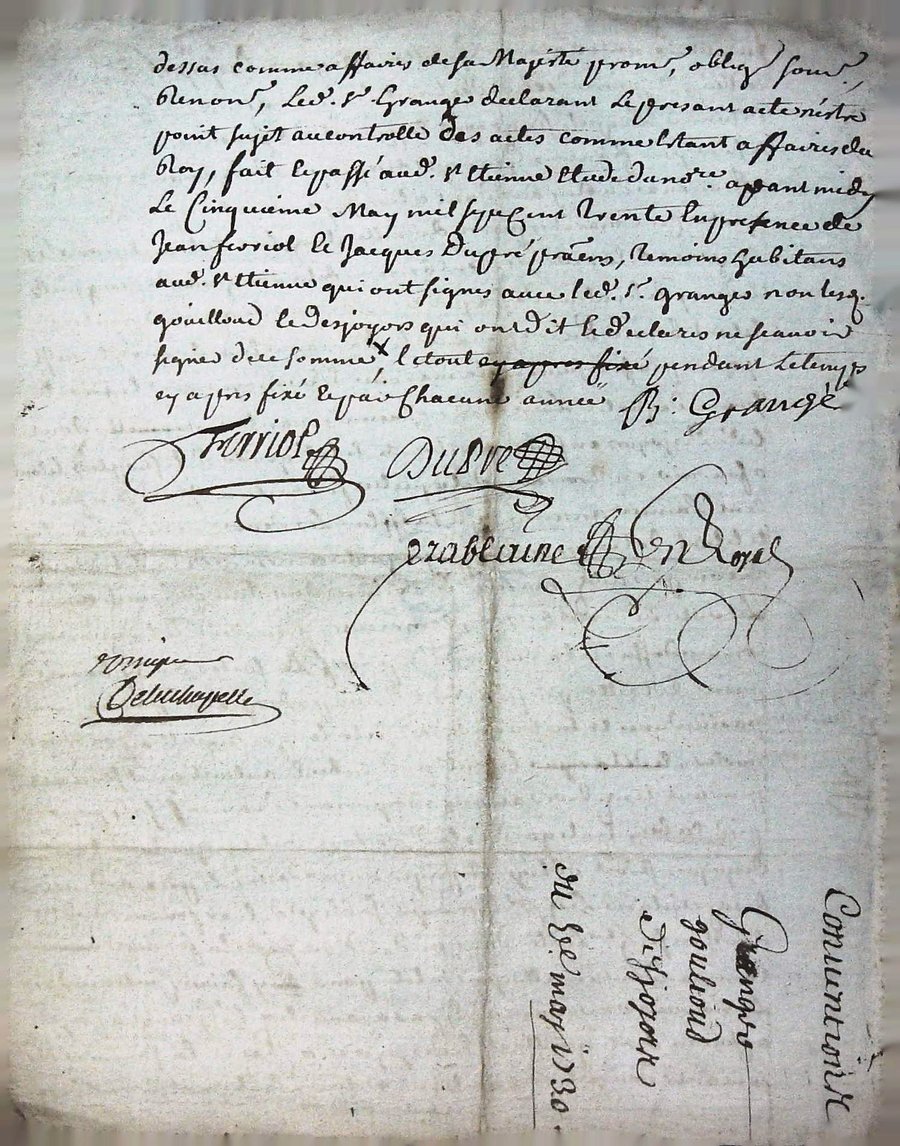 dessus comme affaires de sa Majesté prome, oblige soume,
Renonce, Led. Sr. Grange declarant le present acte nestre
point sujet au controlle des actes comme Estant affaires du
Roy, fait et passé aud. St Etienne Etude du nore. avant midy
Le Cinquieme May mil sept cent Trente En presence de
Jean ferriol et Jacques Dupré praens, temoins habitans
aud. St Etienne qui ont signés avec led. Sr. Grange non lesq.
gouilloud et desjoyors qui ont dit et declares ne scavoir
signe de ce sommes X, le tout ey apres fixé pendant le temps
ey apres fixé et par Chacune année B: Grangé
Ferriol Dupré
erablanne Nre Royal
Delachapelle
Convention
Grange
gouliond
desjojar
du 5e may 1730.